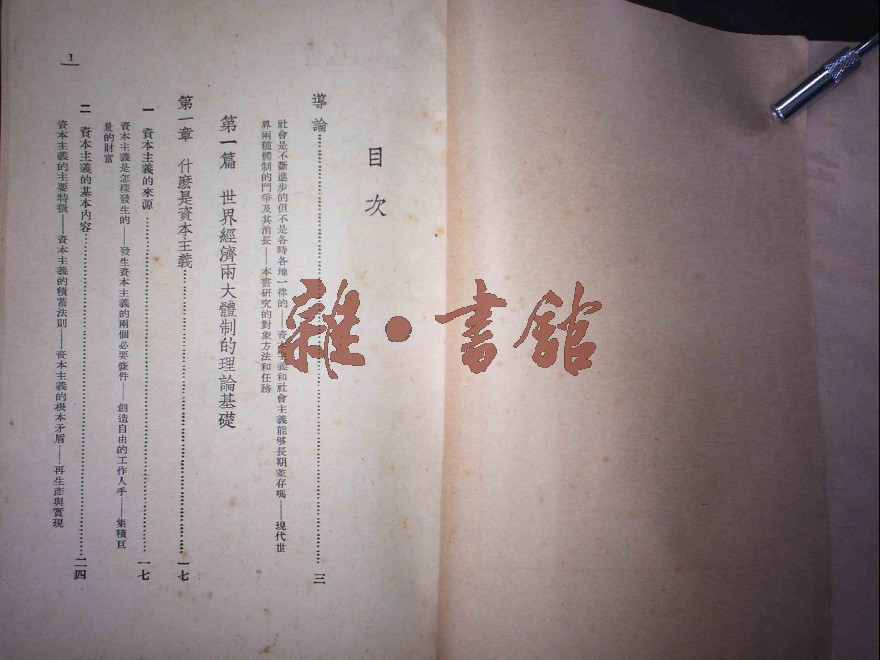 目次
導論……三
社會是不斷進步的但不是各時各地一律的——資本主義和社會主義能够長期並存嗎——現代世
界兩種體制的鬥爭及其消長——本書研究的對象方法和任務
第一篇 世界經濟兩大體制的理論基礎
第一章 什麽是資本主義……一七
一 資本主義的來源……一七
資本主義是怎樣發生的——發生資本主義的兩個必要條件——創造自由的工作人手——集積巨
量的財富
二 資本主義的基本內容……二四
資本主義的主要特徵——資本主義的積蓄法則——資本主義的根本矛盾——再生產與實現
1
雜·書館